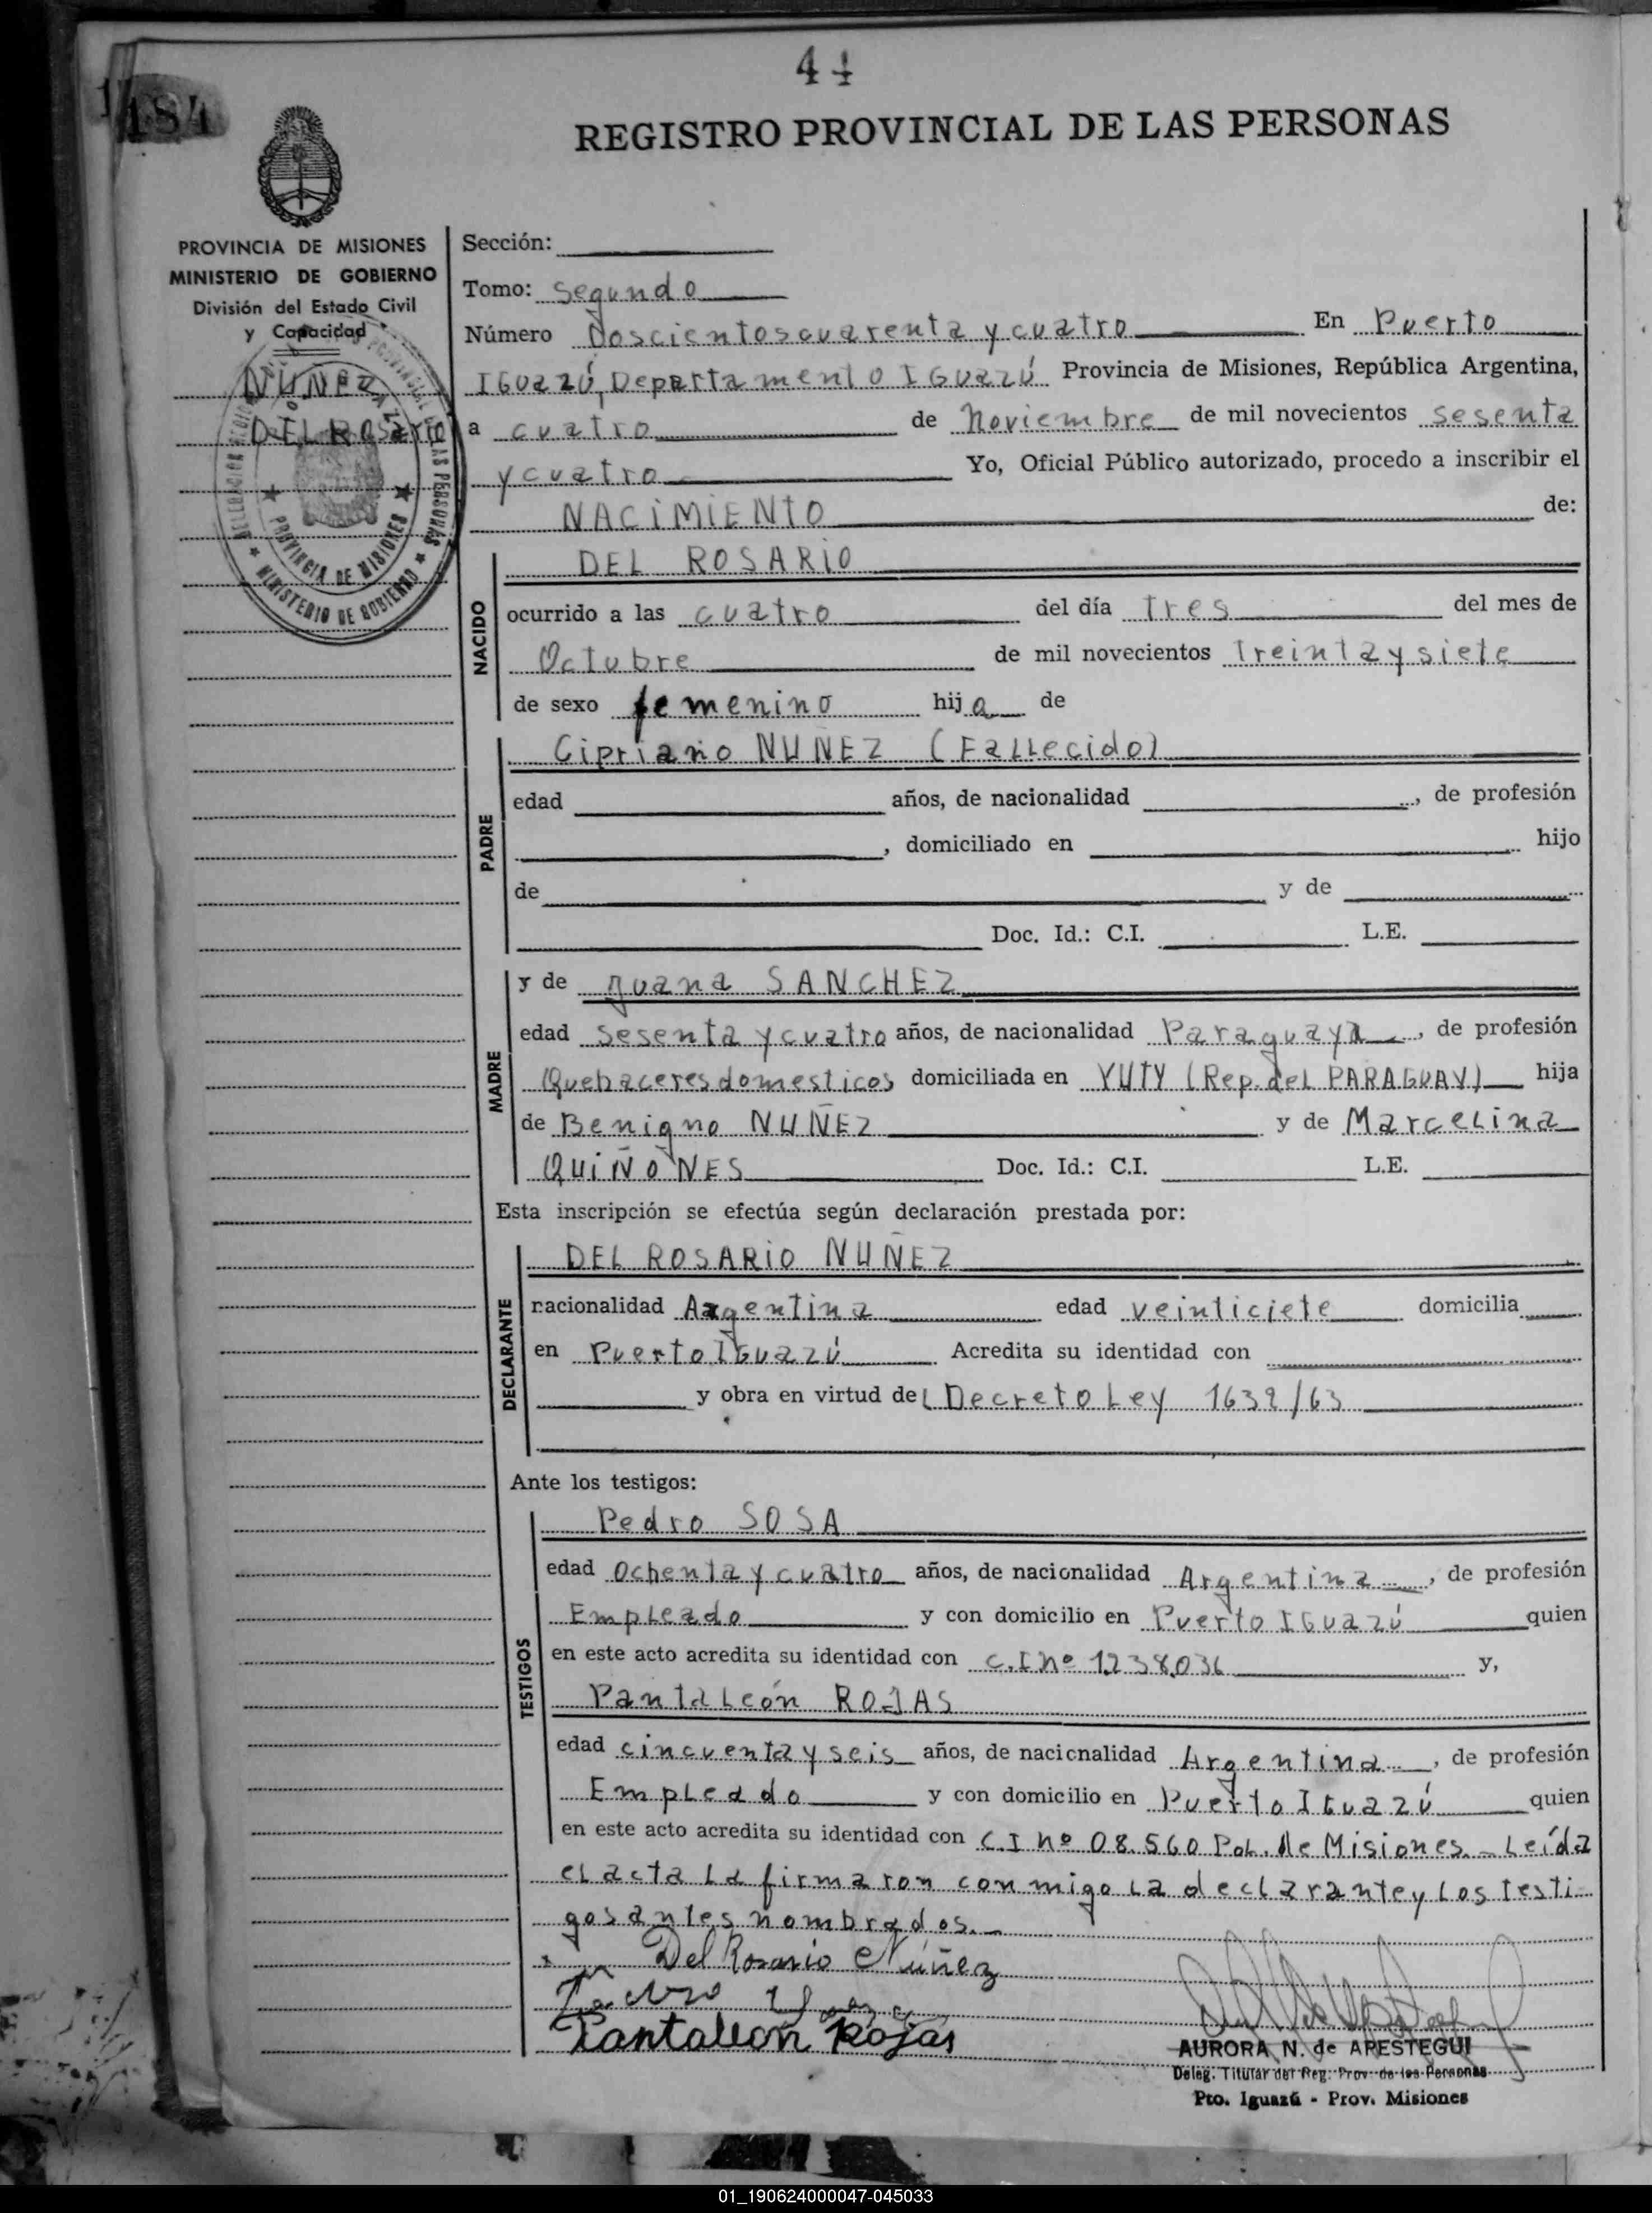 44
184
REGISTRO PROVINCIAL DE LAS PERSONAS
PROVINCIA DE MISIONES
MINISTERIO DE GOBIERNO
División del Estado Civil
y Capacidad
NUÑEZ
DEL ROSARIO
PROVINCIA DE MISIONES
MINISTERIO DE GOBIERNO
Sección:
Tomo: Segundo
Número Doscientos cuarenta y cuatro En Puerto
IGuazú, Departamento IGuazú Provincia de Misiones, República Argentina,
a cuatro de Noviembre de mil novecientos sesenta
y cuatro Yo, Oficial Público autorizado, procedo a inscribir el
NACIMIENTO de:
NACIDO
DEL ROSARIO
ocurrido a las cuatro del día tres del mes de
Octubre de mil novecientos Treinta y siete
de sexo femenino hija de
PADRE
Cipriano NUÑEZ (Fallecido)
edad años, de nacionalidad , de profesión
, domiciliado en hijo
de y de
Doc. Id.: C.I. L.E.
MADRE
y de Juana SANCHEZ
edad sesenta y cuatro años, de nacionalidad Paraguaya, de profesión
Quehaceres domesticos domiciliada en YUTY (Rep. del PARAGUAY) hija
de Benigno NUÑEZ y de Marcelina
QUIÑONES Doc. Id.: C.I. L.E.
Esta inscripción se efectúa según declaración prestada por:
DECLARANTE
DEL ROSARIO NUÑEZ
nacionalidad Argentina edad veinticiete domicilia
en Puerto IGuazú Acredita su identidad con
y obra en virtud del Decreto Ley 1639/63
Ante los testigos:
TESTIGOS
Pedro SOSA
edad Ochenta y cuatro años, de nacionalidad Argentina, de profesión
Empleado y con domicilio en Puerto IGuazú quien
en este acto acredita su identidad con C.I nº 1.238.036 y,
Pantaleón ROJAS
edad cincuenta y seis años, de nacicnalidad Argentina, de profesión
Empleado y con domicilio en Puerto IGuazú quien
en este acto acredita su identidad con C.I nº 08.560 Pol. de Misiones. - Leída
el acta la firmaron conmigo la declarante y los testi-
gos antes nombrados.-
Del Rosario Núñez
Pantaleón Rojas
AURORA N. de APESTEGUI
Deleg. Titular del Reg. Prov. de las Personas
Pto. Iguazú - Prov. Misiones
01_190624000047-045033